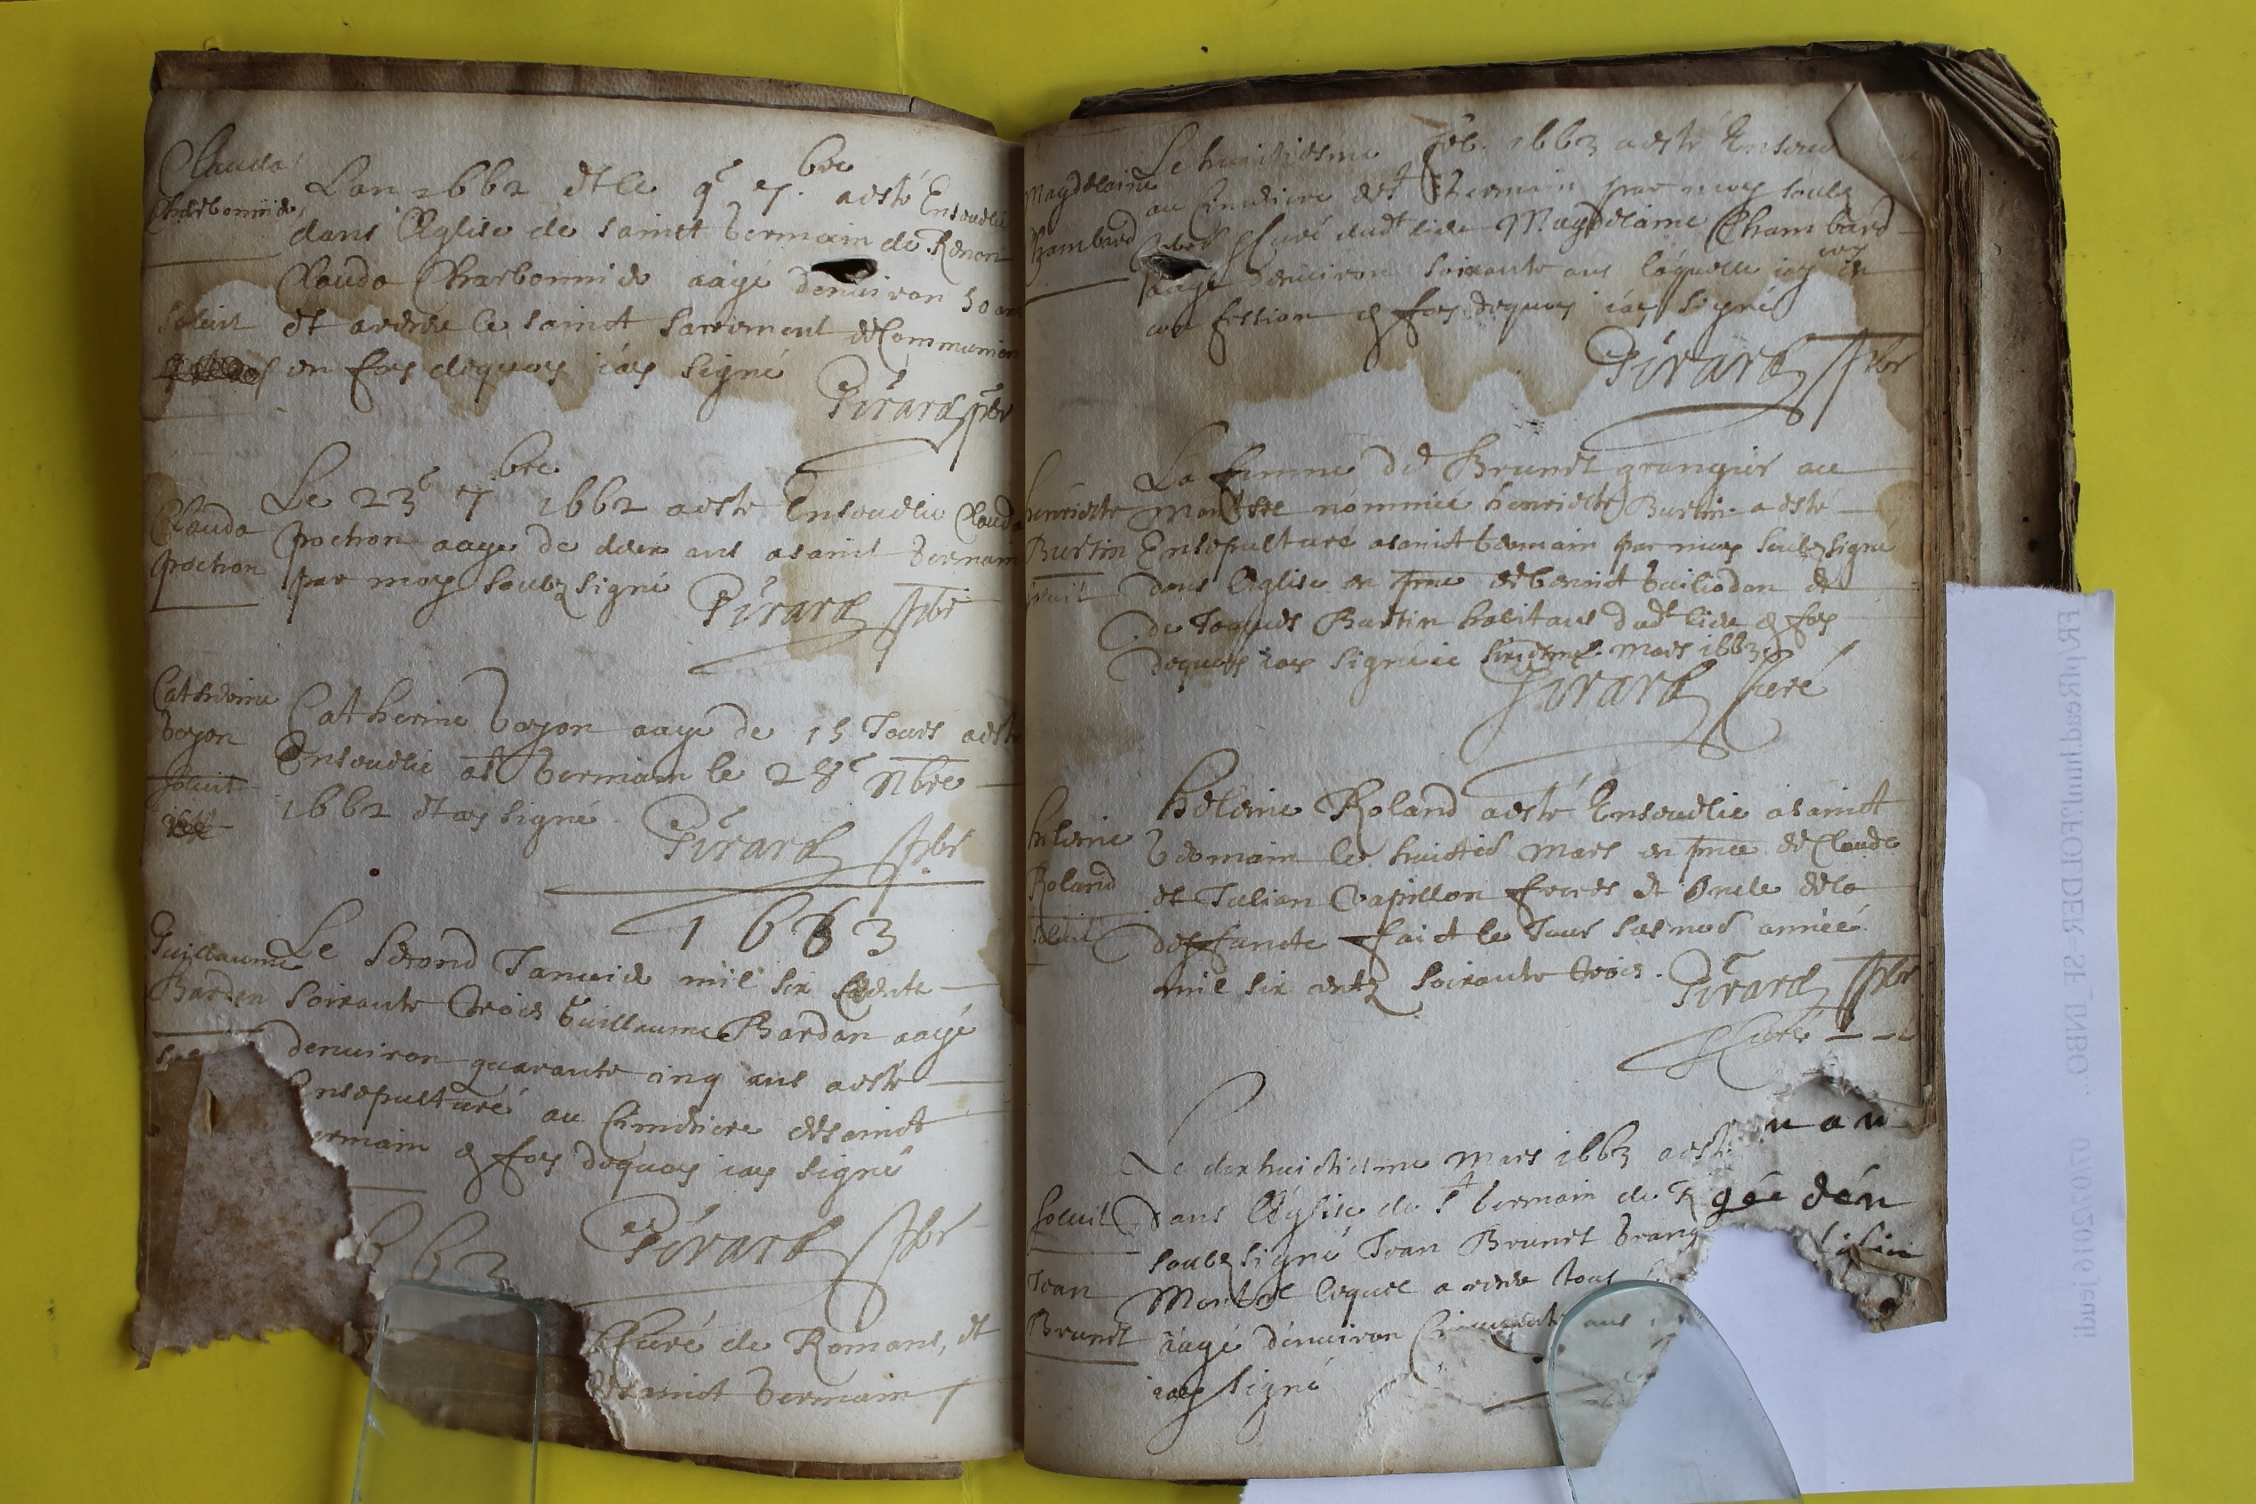 Claude
Charbonnier
Lan 1662 et le 9e 7.bre a esté Ensevelie
dans l'Eglise de sainct Germain de Renon
Claude Charbonnier aagé denviron 50 ans
solvit
et a receu le sainct sacrement de Communion
en foy dequoy iay signé
Girard pbr
Le 23e 7bre 1662 a esté Ensevelie Claude
Claude
pochon
pochon aage de deux ans a sainct Germain
par moy soubzsigné
Girard pbr
Catherine
Goyon
solvit
Catherine Goyon aage de 15 Jours a esté
Ensevelie a St Germain le 28e Nbre
1662 et ay signé
Girard pbr
1663
Guillaume
Bardon
Le second Janvier mil six Cents
soixante trois Guillaume Bardon aagé
denviron quarante cinq ans a esté
Ensepulturé au Cimetiere de sainct
ermain & foy dequoy iay signé
663
Girard pbr
Curé de Romans, et
de sainct Germain
Magdelaine
Chambard
Le huictiesme feb. 1663 a esté Enseve
au Cimetiere de St Germain par moy soubz
Curé dudt lieu Magdelaine Chambard
aagé denviron soixante ans laquelle iay ouy en
confession & foy dequoy iay signé
Girard pbr
henriette
Burtin
solvit
La femme de Brunet grangier au
nommée henriette Burtin a esté
Ensepulturé a sainct Germain par moy soubzsigné
dans l'Eglise en pnce de benoit Guilliodon et
de Jaques Burtin habitans dudt lieu & foy
dequoy iay signé ce mars 1663
Girard Curé
helene
Roland
solvit
helene Roland a esté Ensevelie a sainct
Germain le huictie mars en pnce de Claude
et Julian Papillon freres et oncle de la
deffuncte faict le Jour sus annéé
mil six centz soixante trois.
Girard pbr
Curé
Le dixhuictiesme mars 1663 a esté
solvit
Dans l'Eglise de St Germain de R gée dén
soubzsigné Jean Brunet Grang
Jean
Brunet
lequel a receu tous
aagé denviron ans
iay signé